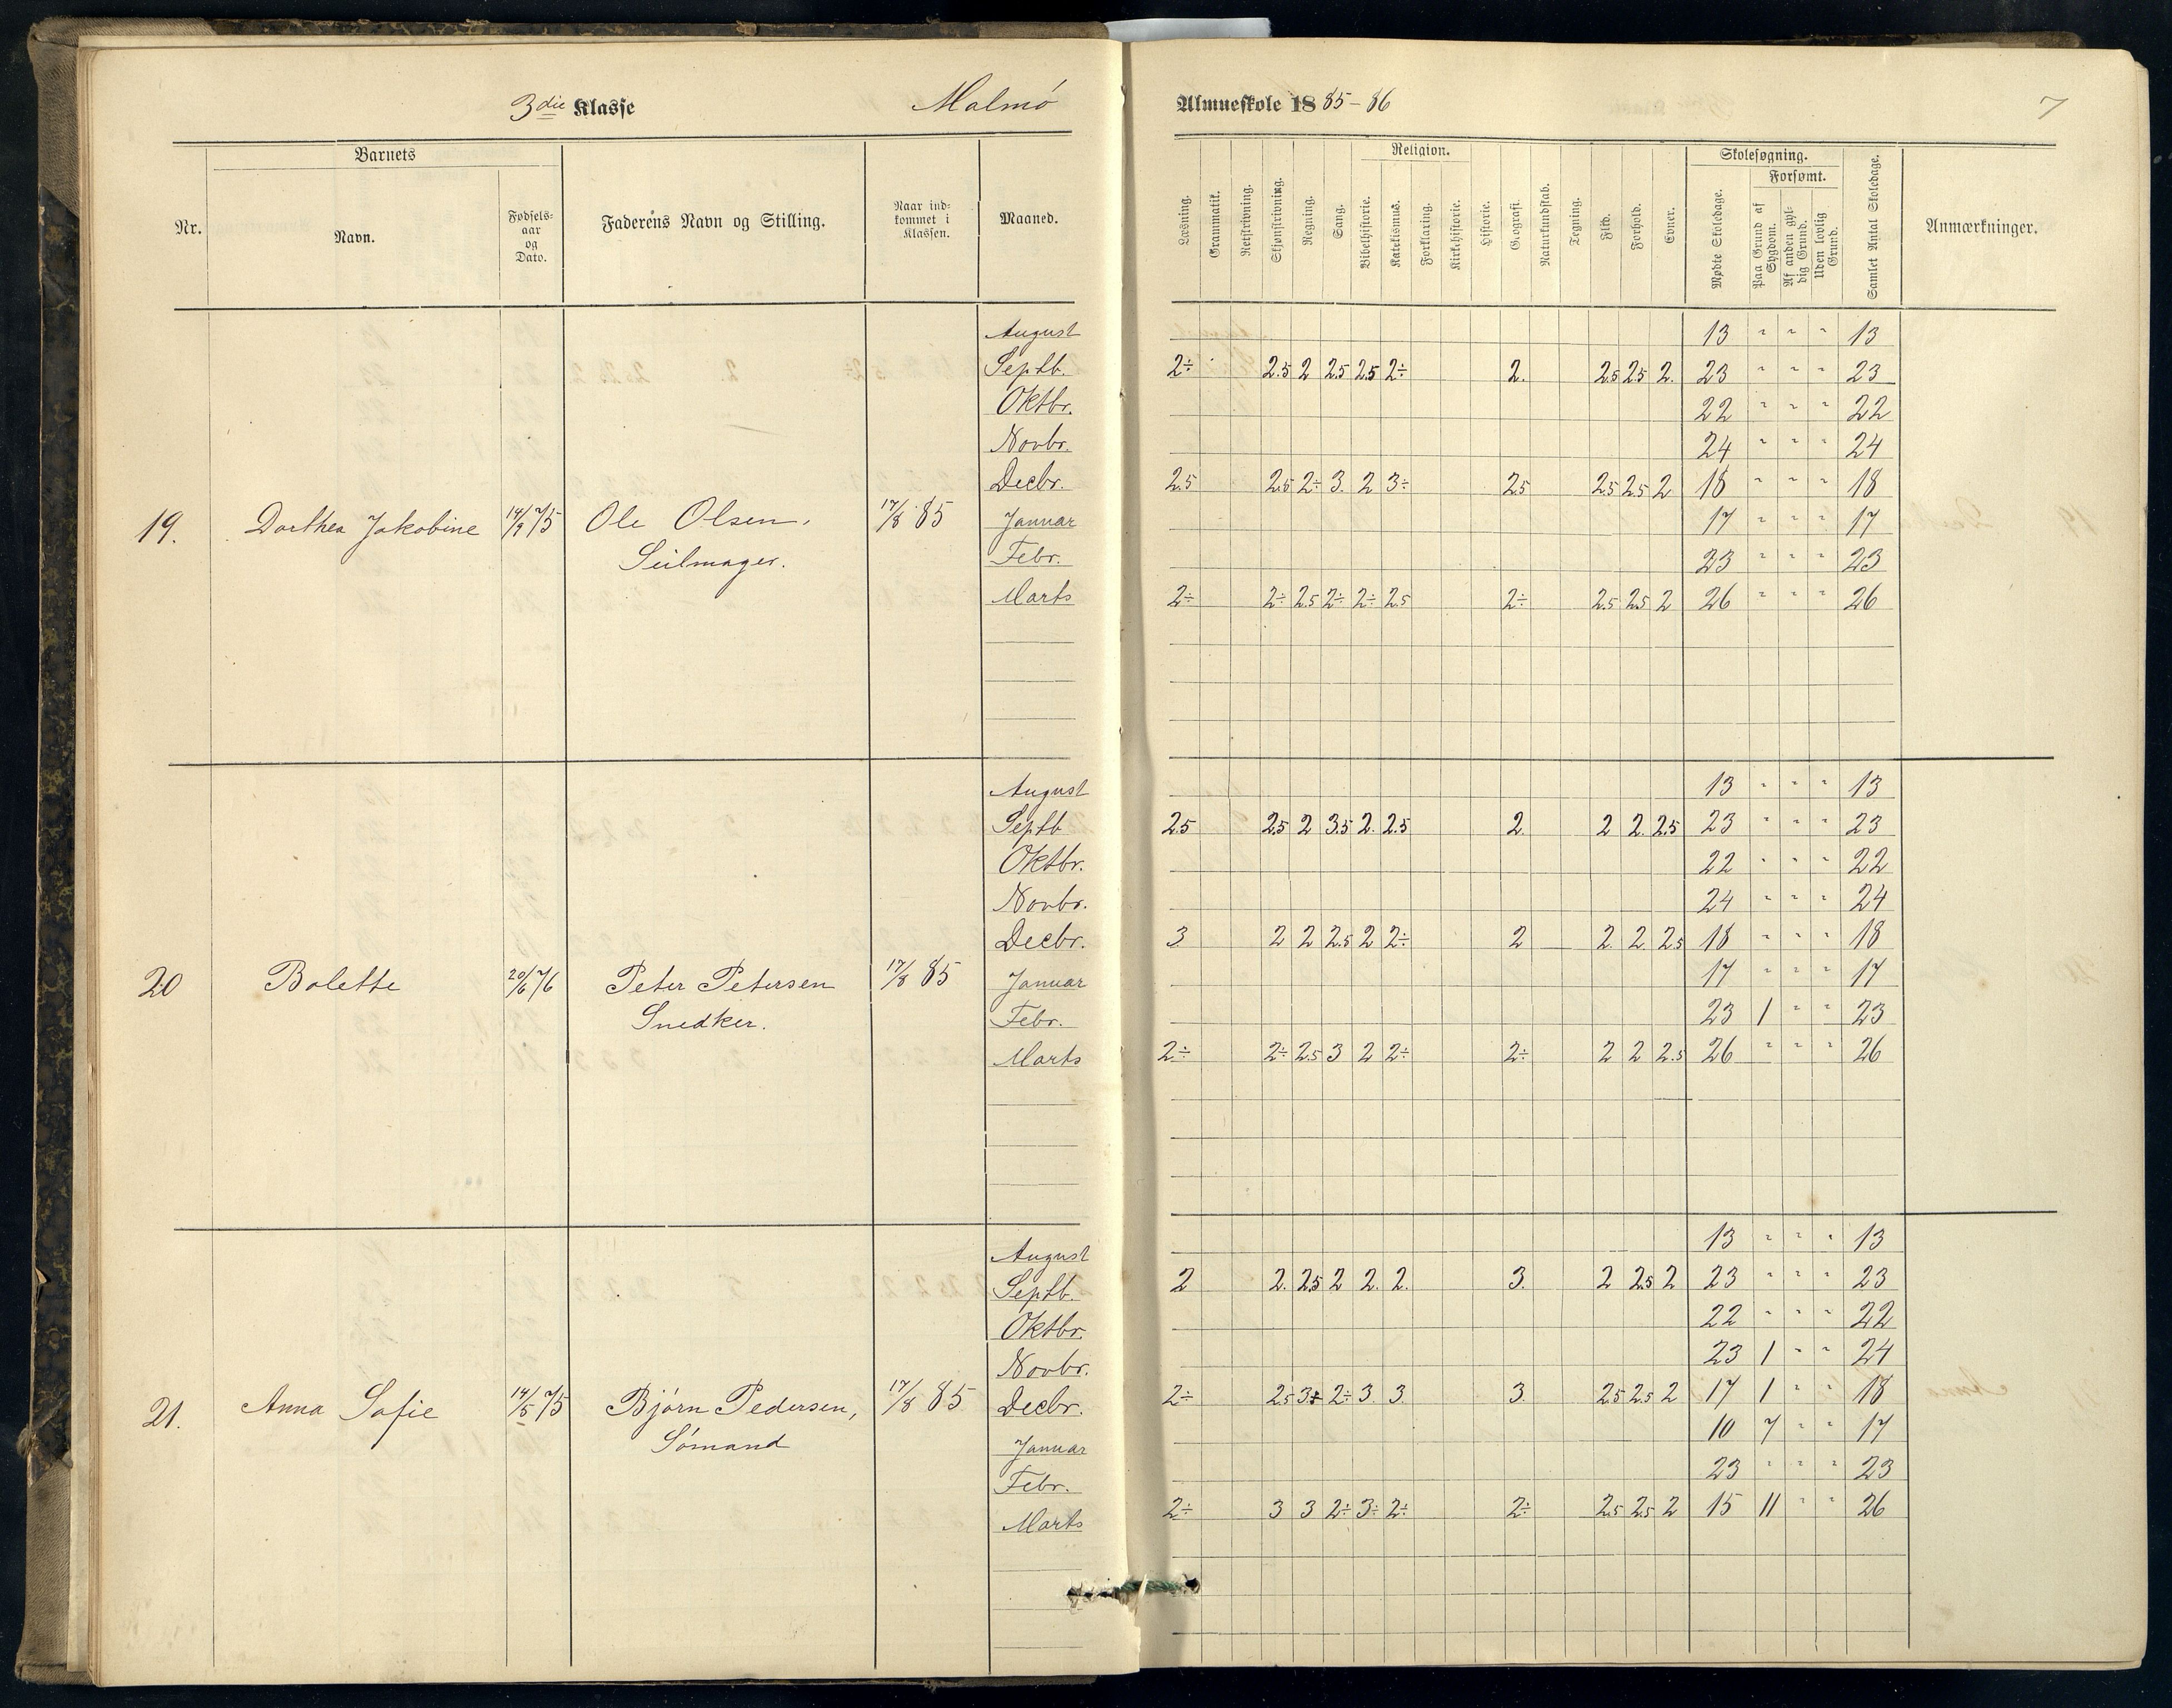 3die Klasse
Malmö
Almueskole 1885-86
7
Barnets
Nr.
Navn.
Fødsels-
aar
og
Dato.
Faderens Navn og Stilling.
Naar ind-
kommet i
Klassen.
Maaned.
Læsning.
Grammatik.
Retskrivning.
Skjønskrivning.
Regning.
Sang.
Religion.
Bibelhistorie.
Katekismus.
Forklaring.
Kirkehistorie.
Historie.
Geografi.
Naturkundskab.
Tegning.
Flid.
Forhold.
Evner.
Skolesøgning.
Mødte Skoledage.
Forsømt.
Paa Grund af
Sygdom.
Af anden gyl-
dig Grund.
Uden lovlig
Grund.
Samlet Antal Skoledage.
Anmærkninger.
19. Dorthea Jakobine 14/9 75 Ole Olsen, 17/8 85
Seilmager.
August 13 " " " 13
Septb. 2÷ 2.5 2 2.5 2.5 2÷ 2. 2.5 2.5 2. 23 " " " 23
Oktbr. 22 " " " 22
Novbr. 24 " " " 24
Decbr. 2.5 2.5 2÷ 3. 2 3÷ 2.5 2.5 2.5 2 18 " " " 18
Januar 17 " " " 17
Febr. 23 " " " 23
Marts 2÷ 2÷ 2.5 2÷ 2÷ 2.5 2÷ 2.5 2.5 2 26 " " " 26
20 Bolette 20/6 76 Peter Petersen 17/8 85
Snedker.
August 13 " " " 13
Septb 2.5 2.5 2 3.5 2. 2.5 2. 2 2. 2.5 23 " " " 23
Oktbr. 22 " " " 22
Novbr. 24 " " " 24
Decbr. 3 2 2 2.5 2 2÷ 2 2. 2. 2.5 18 " " " 18
Januar 17 " " " 17
Febr. 23 1 " " 23
Marts 2÷ 2÷ 2.5 3 2 2÷ 2÷ 2 2 2.5 26 " " " 26
21. Anna Sofie 14/5 75 Bjørn Pedersen, 17/8 85
Sømand
August 13 " " " 13
Septb. 2 2. 2.5 2 2. 2. 3. 2 2.5 2 23 " " " 23
Oktbr. 22 " " " 22
Novbr. 23 1 " " 24
Decbr. 2÷ 2.5 3÷ 2÷ 3. 3. 3. 2.5 2.5 2 17 1 " " 18
Januar 10 7 " " 17
Febr. 23 " " " 23
Marts 2÷ 3 3 2÷ 3÷ 2÷ 2÷ 2.5 2.5 2 15 11 " " 26